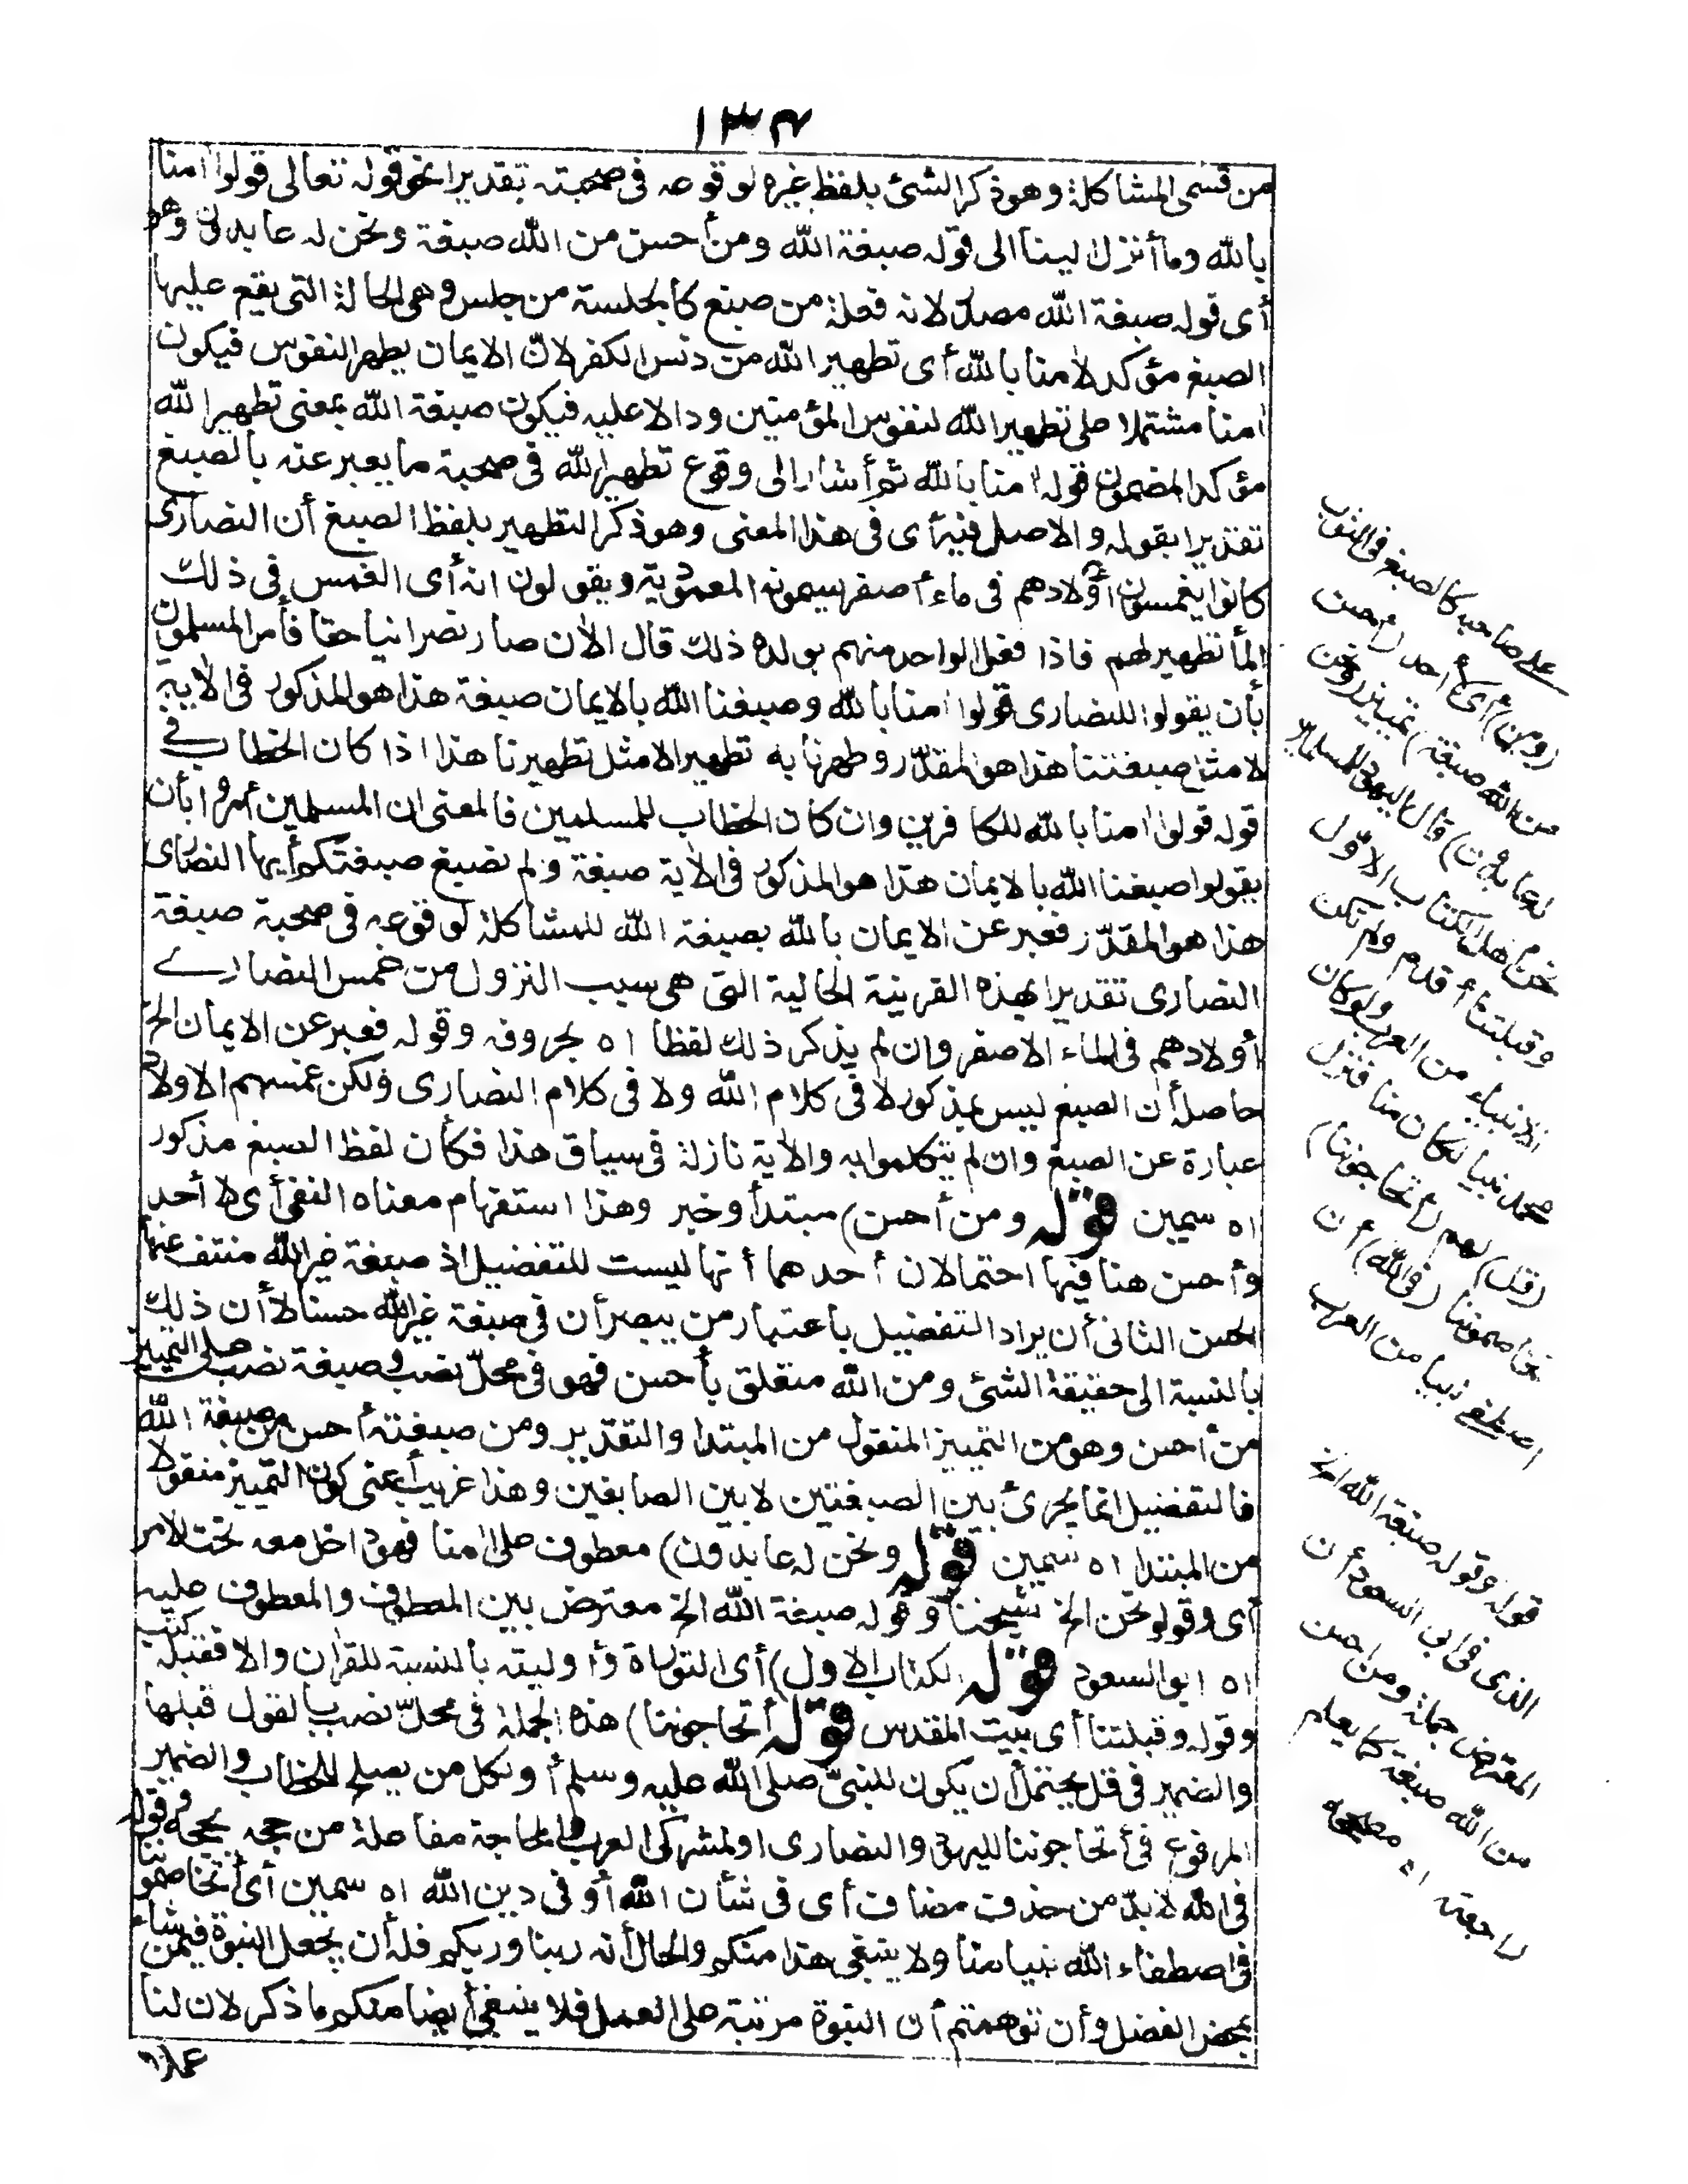 ١٣٤
من قسمى المشاكلة وهو ذكر الشئ بلفظ غيره لوقوعه فى صحبته تقديرا نحو قوله تعالى قولوا اٰمنا
بالله وما أنزل الينا الى قوله صبغة الله ومن أحسن من الله صبغة ونحن له عابدون وهو
أى قوله صبغة الله مصدر لانه فعلة من صبغ كالجلسة من جلس وهى الحالة التى يقع عليها
الصبغ مؤكد لاٰمنا بالله أى تطهير الله من دنس الكفر لانّ الايمان يطهر النفوس فيكون
اٰمنا مشتملا على تطهير الله لنفوس المؤمنين ودالا عليه فيكون صبغة الله بمعنى تطهير الله
مؤكدا لمضمون قوله اٰمنا بالله ثم أشار الى وقوع تطهير الله فى صحبة ما يعبر عنه بالصبغ
تقديرا بقوله والاصل فيه أى فى هذا المعنى وهو ذكر التطهير بلفظ الصبغ أن النصارى
كانوا يغمسون أولادهم فى ماء أصفر يسمونه المعمودية ويقولون انه أى الغمس فى ذلك
الماء تطهير لهم فاذا فعل الواحد منهم بولده ذلك قال الاٰن صار نصرانيا حقا فأمر المسلمون
بأن يقولوا للنصارى قولوا اٰمنا بالله وصبغنا الله بالايمان صبغة هذا هو المذكور فى الاٰية
لا مثل صبغتنا هذا هو المقدّر وطهرنا به تطهيرا لا مثل تطهيرنا هذا اذا كان الخطاب فى
قوله قولوا اٰمنا بالله للكافرين وان كان الخطاب للمسلمين فالمعنى ان المسلمين أمروا بأن
يقولوا صبغنا الله بالايمان هذا هو المذكور فى الاٰية صبغة ولم نصبغ صبغتكم أيها النصارى
هذا هو المقدّر فعبر عن الايمان بالله بصبغة الله للمشاكلة لوقوعه فى صحبة صبغة
النصارى تقديرا بهذه القرينة الحالية التى هى سبب النزول من غمس النصارى
أولادهم فى الماء الاصفر وان لم يذكر ذلك لفظا اه بحروفه وقوله فعبر عن الايمان الخ
حاصله أن الصبغ ليس بمذكور لا فى كلام الله ولا فى كلام النصارى ولكن غمسهم الاولاد
عبارة عن الصبغ وان لم يتكلموا به والاٰية نازلة فى سياق هذا فكأن لفظ الصبغ مذكور
اه سمين قوله ومن أحسن) مبتدأ وخبر وهذا استفهام معناه النفى أى لا أحد
وأحسن هنا فيها احتمالان أحدهما أنها ليست للتفضيل اذ صبغة غير الله منتف عنها
الحسن الثانى أن يراد التفضيل باعتبار من يبصر أن فى صبغة غير الله حسنا لا أن ذلك
بالنسبة الى حقيقة الشئ ومن الله متعلق بأحسن فهو فى محلّ نصب وصبغة نصب على التمييز
من أحسن وهو من التمييز المنقول من المبتدا والتقدير ومن صبغته أحسن من صبغة الله
فالتفضيل انما يجرى بين الصبغتين لا بين الصابغين وهذا غريب أعنى كون التمييز منقولا
من المبتدا اه سمين قوله ونحن له عابدون) معطوف على اٰمنا فهو داخل معه تحت الامر
أى وقولوا نحن الخ شيخنا وقوله صبغة الله الخ معترض بين المعطوف والمعطوف عليه
اه ابو السعود قوله الكتاب الاول) أى التوراة وأوليته بالنسبة للقراٰن والا فقبله كتب
وقوله وقبلتنا أى بيت المقدس قوله أتحاجوننا) هذه الجملة فى محلّ نصب بالقول قبلها
والضمير فى قل يحتمل أن يكون للنبىّ صلى الله عليه وسلم أو لكل من يصلح للخطاب والضمير
المرفوع فى أتحاجوننا لليهود والنصارى او لمشركى العرب والمحاجة مفاعلة من حجه يحجه وقوله
فى الله لا بدّ من حذف مضاف أى فى شأن الله أو فى دين الله اه سمين أى أتخاصموننا
فى اصطفاء الله نبيا منا ولا ينبغى هذا منكم والحال أنه ربنا وربكم فله أن يجعل النبوّة فيمن شاء
بمحض الفضل وأن توهمتم أن النبوّة مرتبة على العمل فلا ينبغى أيضا منكم ما ذكر لان لنا
على صاحبه كالصبغ فى الثوب
(ومن) أى لا أحد (أحسن
من الله صبغة) تمييز (ونحن
له عابدون) قال اليهود للمسلمين
نحن أهل الكتاب الاوّل
وقبلتنا أقدم ولم تكن
الانبياء من العرب ولو كان
محمد نبيا لكان منا فنزل
(قل) لهم (أتحاجوننا)
تخاصموننا (فى الله) أن
اصطفى نبيا من العرب
قوله وقوله صبغة الله الخ
الذى فى ابى السعود أن
المعترض جملة ومن احسن
من الله صبغة كما يعلم
مراجعته اه مصححه